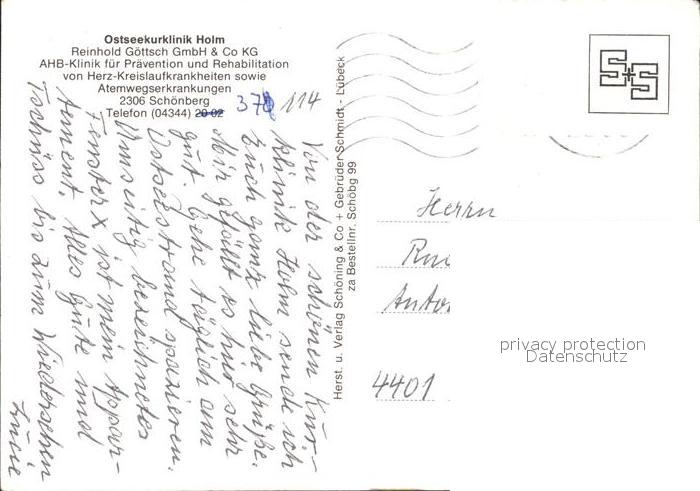 Ostseekurklinik Holm
Reinhold Göttsch GmbH & Co KG
AHB-Klinik für Prävention und Rehabilitation
von Herz-Kreislaufkrankheiten sowie
Atemwegserkrankungen
2306 Schönberg
Telefon (04344) 20 02 37 114
Von der schönen Kur-
klinik Holm sende ich
Euch ganz liebe Grüße.
Mir gefällt es hier sehr
gut. Gehe täglich am
Ostseestrand spazieren.
Umseitig bezeichnetes
Fenster X ist mein Appar-
tement. Alles Gute und
Tschüss bis zum Wiedersehen
Lucie
Herst. u. Verlag Schöning & Co + Gebrüder Schmidt - Lübeck
za Bestellnr. Schöbg 99
S+S
Herrn
4401
privacy protection
Datenschutz